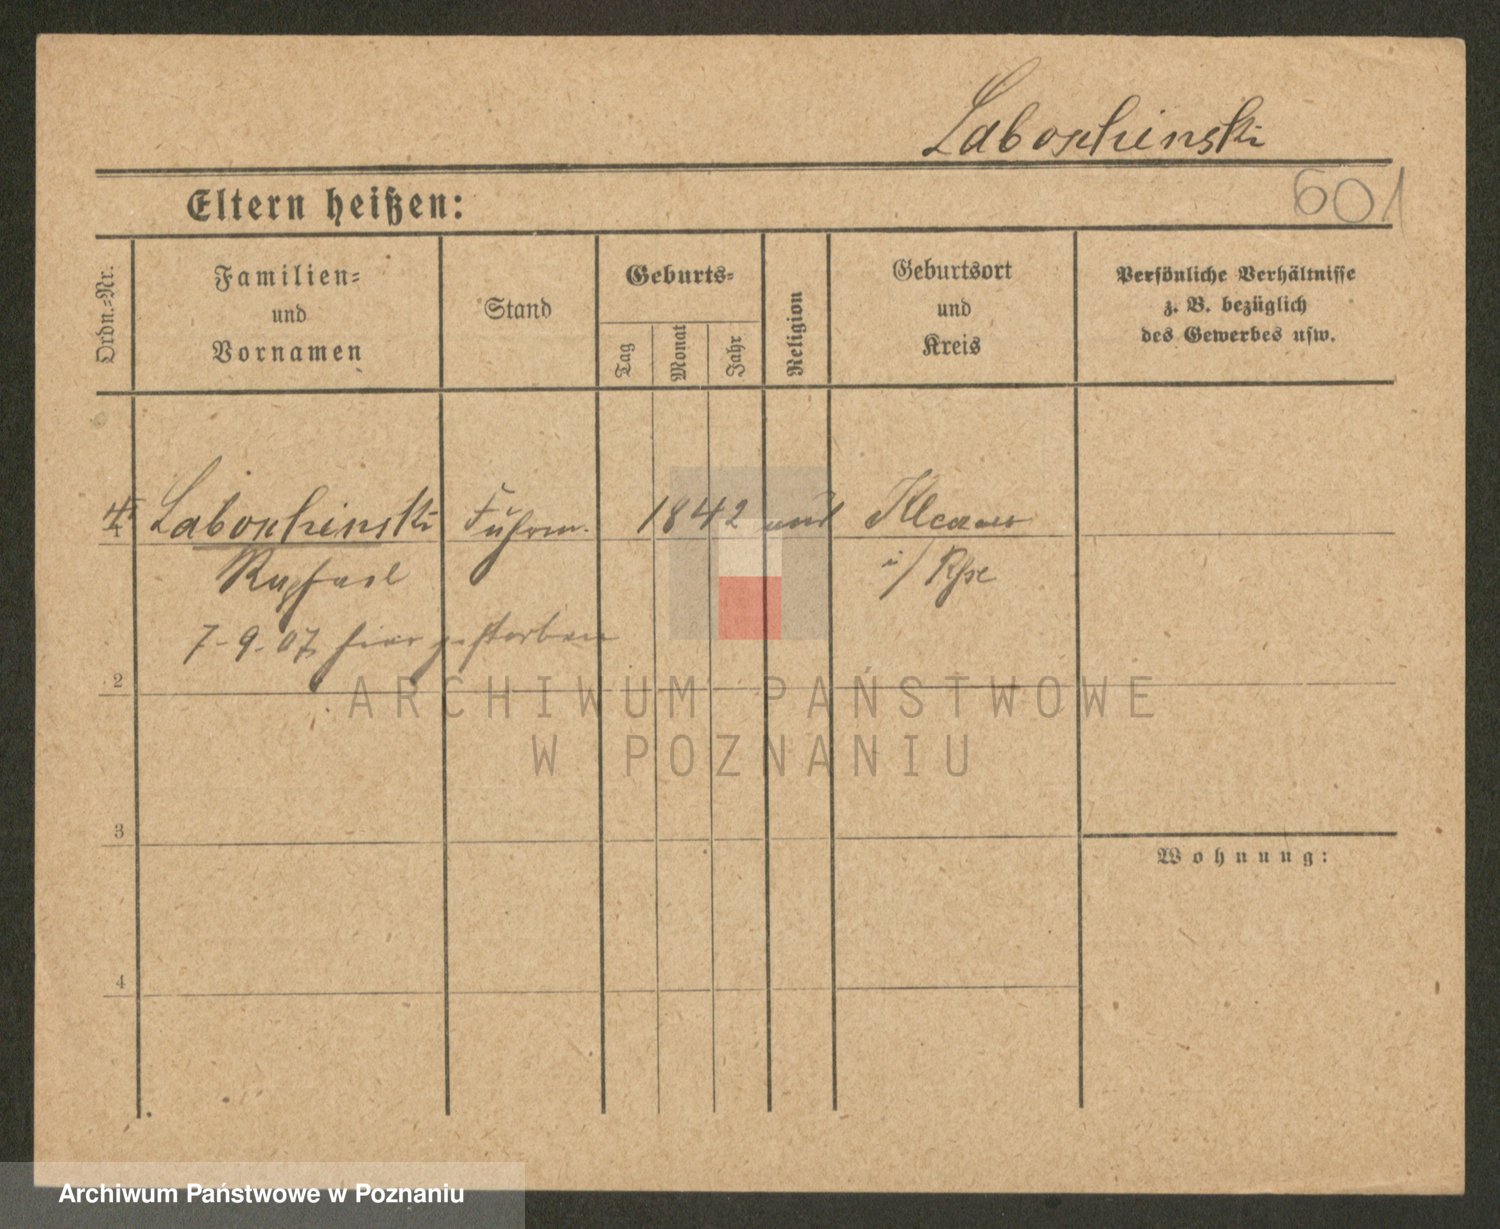 Laboschinski
601
Eltern heißen:
Ordn.-Nr.
Familien-
und
Vornamen
Stand
Geburts-
Tag
Monat
Jahr
Religion
Geburtsort
und
Kreis
Persönliche Verhältnisse
z. B. bezüglich
des Gewerbes usw.
Laboschinski Fuhrm. 1842
Raphael
7-9-07 hier gestorben
2
ARCHIWUM PAŃSTWOWE
W POZNANIU
3
Wohnung:
4
Archiwum Państwowe w Poznaniu